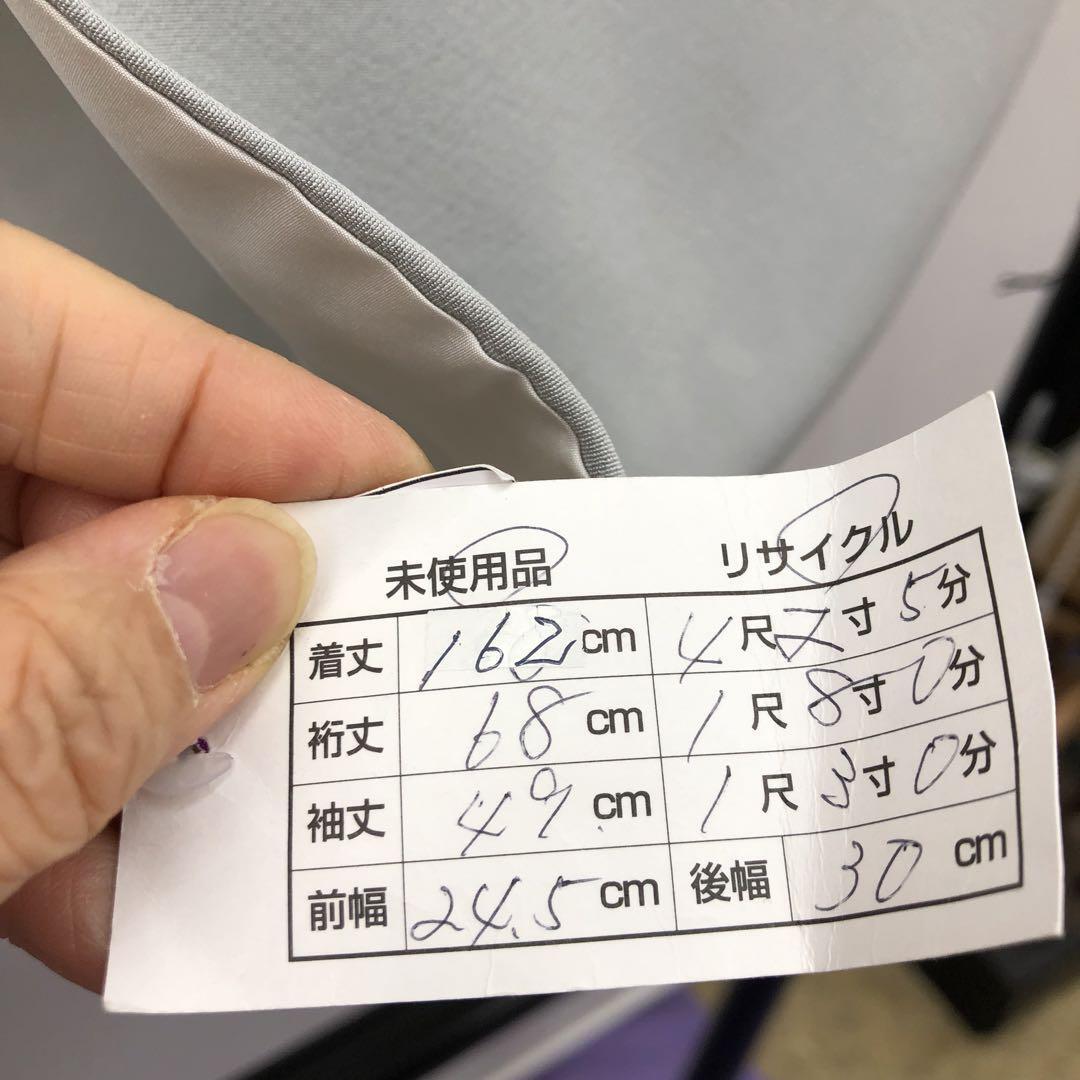 未使用品 リサイクル
着丈 162 cm 4尺2寸5分
裄丈 68 cm 1尺8寸0分
袖丈 49 cm 1尺3寸0分
前幅 24.5 cm 後幅 30 cm